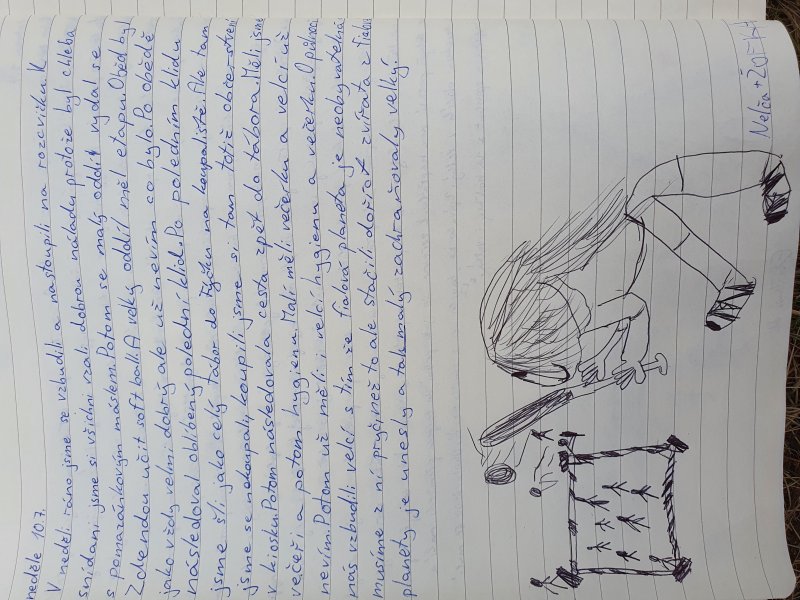 neděle 10.7.
V neděli ráno jsme se vzbudili a nastoupili na rozcvičku. K
snídani jsme si všichni vzali dobrou náladu protože byl chleba
s pomazánkovým máslem. Potom se malý oddíl vydal se
Zdendou učit softball. A velký oddíl měl etapu. Oběd byl
jako vždy velmi dobrý ale už nevím co bylo. Po obědě
následoval oblíbený polední klid. Po poledním klidu
jsme šli jako celý tábor do Fryčku na koupaliště. Ale tam
jsme se nekoupali, koupili jsme si tam totiž občerstvení
v kiosku. Potom následovala cesta zpět do tábora. Měli jsme
večeři a potom hygienu. Malí měli večerku a velcí už
nevím. Potom už měli i velcí hygienu a večerku. O půlnoci
nás vzbudili velcí s tím že fialová planeta je neobyvatelná
musíme z ní pryč než to ale stačili dořict zvířata z
planety je unesly a tak malý zachraňovaly velký.
Nelča +